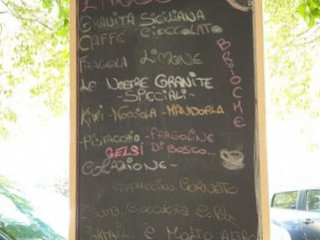 GRANITA SICILIANA
CAFFÈ CIOCCOLATO
FRAGOLA LIMONE
BRIOCHE
LE NOSTRE GRANITE
SPECIALI-
KIWI-NOCCIOLA-MANDORLA
-PISTACCHIO-FRAGOLINE
GELSI DI BOSCO...
COLAZIONE~
CAPPUCCINO CORNETTO
E MOLTO ALTRO